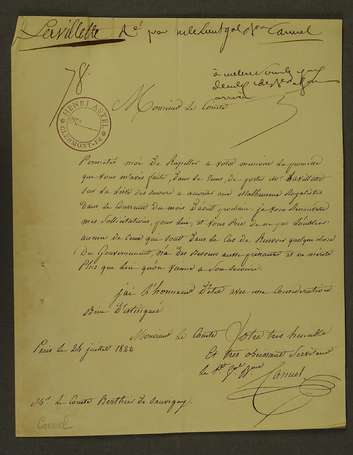 Servillette Rd par mr le Lieut gal Bon Canuel
78.
HENRI AUTRIC
CLERMONT-FD
Monsieur le Comte
Permettez moi de Rappeller a votre memoire la promesse
que vous m'avez faite dans le cas de
sur la liste des secours a accorder aux malheureux Royalistes
dans le courant du mois d'aout prochain je vous Renouvelle
mes sollicitations pour lui, et vous prie de ne pas l'oublier
aucun de ceux qui sont dans le cas de Recevoir quelque chose
du Gouvernement, n'a des besoins aussi pressants et ne merite
plus que lui qu'on vienne a son secours.
j'ai l'honneur d'etre avec une Consideration
Bien Distinguée
Monsieur le Comte Votre très humble
Et très obeissant Serviteur
Paris le 24 juillet 1822 le Lt gal Bon
Canuel
Mr. le Comte Berthier de Sauvigny
Canuel